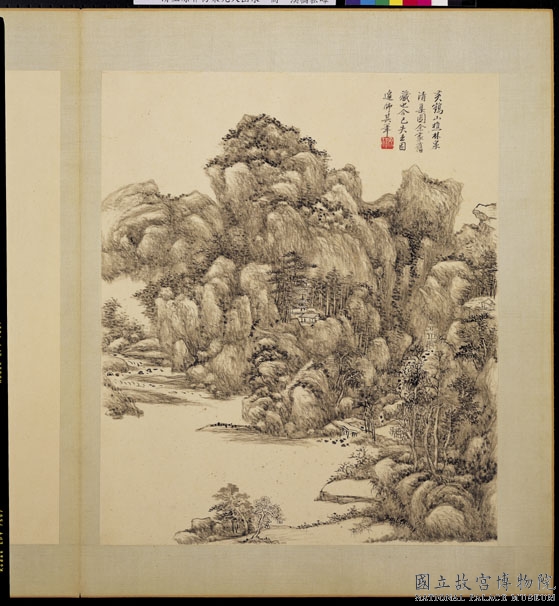 黃鶴山樵林泉
清集圖余家舊
藏也今已失去因
追師其筆
國立故宮博物院
NATIONAL PALACE MUSEUM